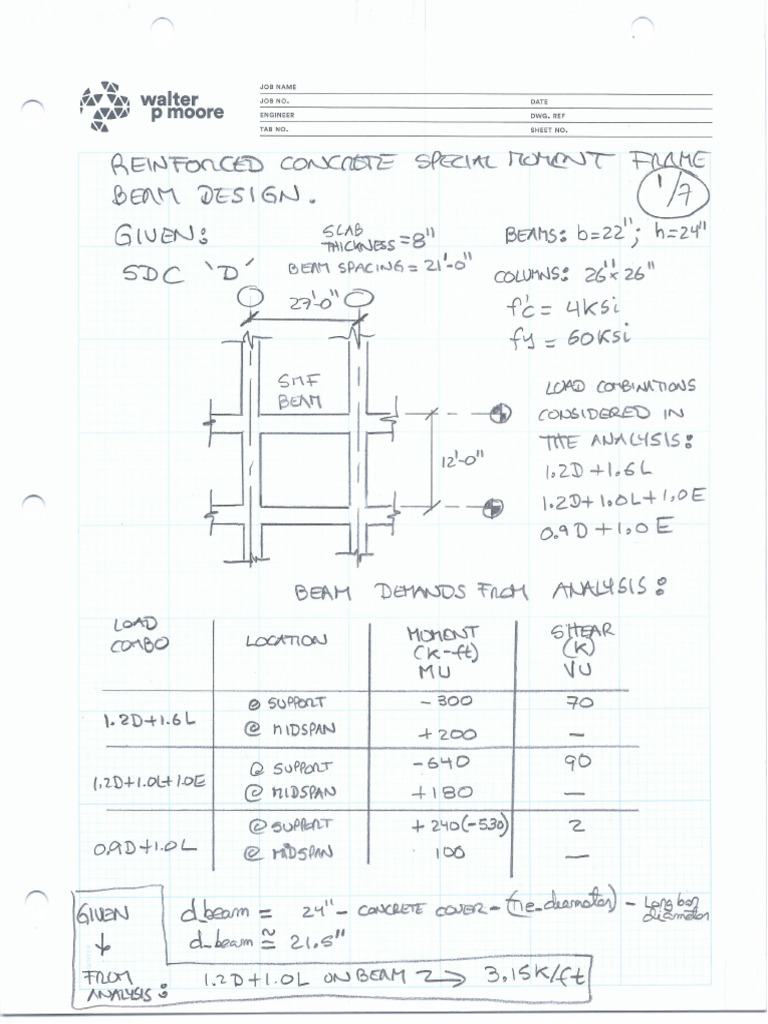 walter
p moore
JOB NAME
JOB NO. DATE
ENGINEER DWG. REF
TAB NO. SHEET NO.
REINFORCED CONCRETE SPECIAL MOMENT FRAME
BEAM DESIGN. 1/7
GIVEN: SLAB THICKNESS = 8" BEAMS: b=22"; h=24"
SDC 'D' BEAM SPACING = 21'-0" COLUMNS: 26"x26"
27'-0" f'c = 4ksi
fy = 60ksi
SMF
BEAM
LOAD COMBINATIONS
CONSIDERED IN
THE ANALYSIS:
12'-0"
1.2D+1.6L
1.2D+1.0L+1.0E
0.9D+1.0E
BEAM DEMANDS FROM ANALYSIS:
LOAD COMBO LOCATION MOMENT (k-ft) MU SHEAR (k) VU
1.2D+1.6L @ SUPPORT -300 70
@ MIDSPAN +200 —
1.2D+1.0L+1.0E @ SUPPORT -640 90
@ MIDSPAN +180 —
0.9D+1.0L @ SUPPORT +240(-530) 2
@ MIDSPAN 100 —
GIVEN d_beam = 24" - CONCRETE COVER - (tie_diameter) - Long bar diameter
d_beam ≅ 21.5"
FROM ANALYSIS: 1.2D+1.0L ON BEAM → 3.15K/ft